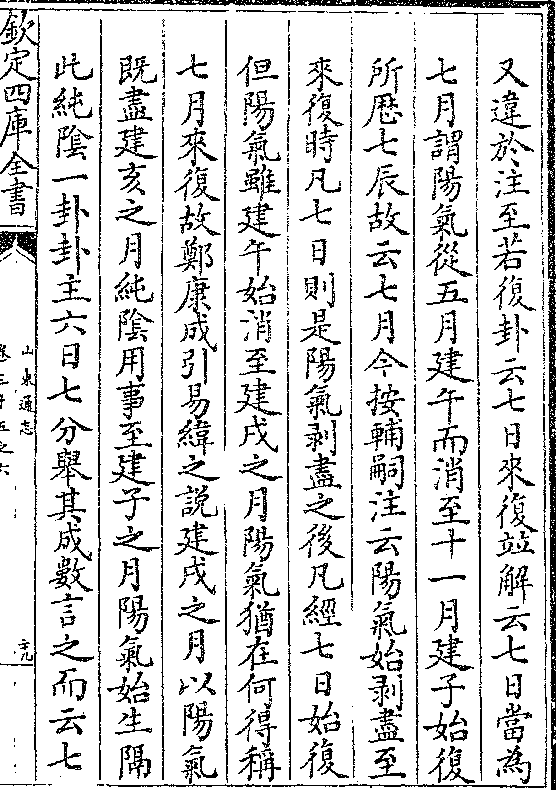 又違於注至若復卦云七日來復竝解云七日當為
七月謂陽氣從五月建午而消至十一月建子始復
所歴七辰故云七月今按輔嗣注云陽氣始剥盡至
來復時凡七日則是陽氣剥盡之後凡經七日始復
但陽氣雖建午始消至建戌之月陽氣猶在何得稱
七月來復故鄭康成引易緯之說建戌之月以陽氣
既盡建亥之月純陰用事至建子之月陽氣始生隔
此純陰一卦卦主六日七分舉其成數言之而云七
欽定四庫全書
山東通志
卷三十五之六